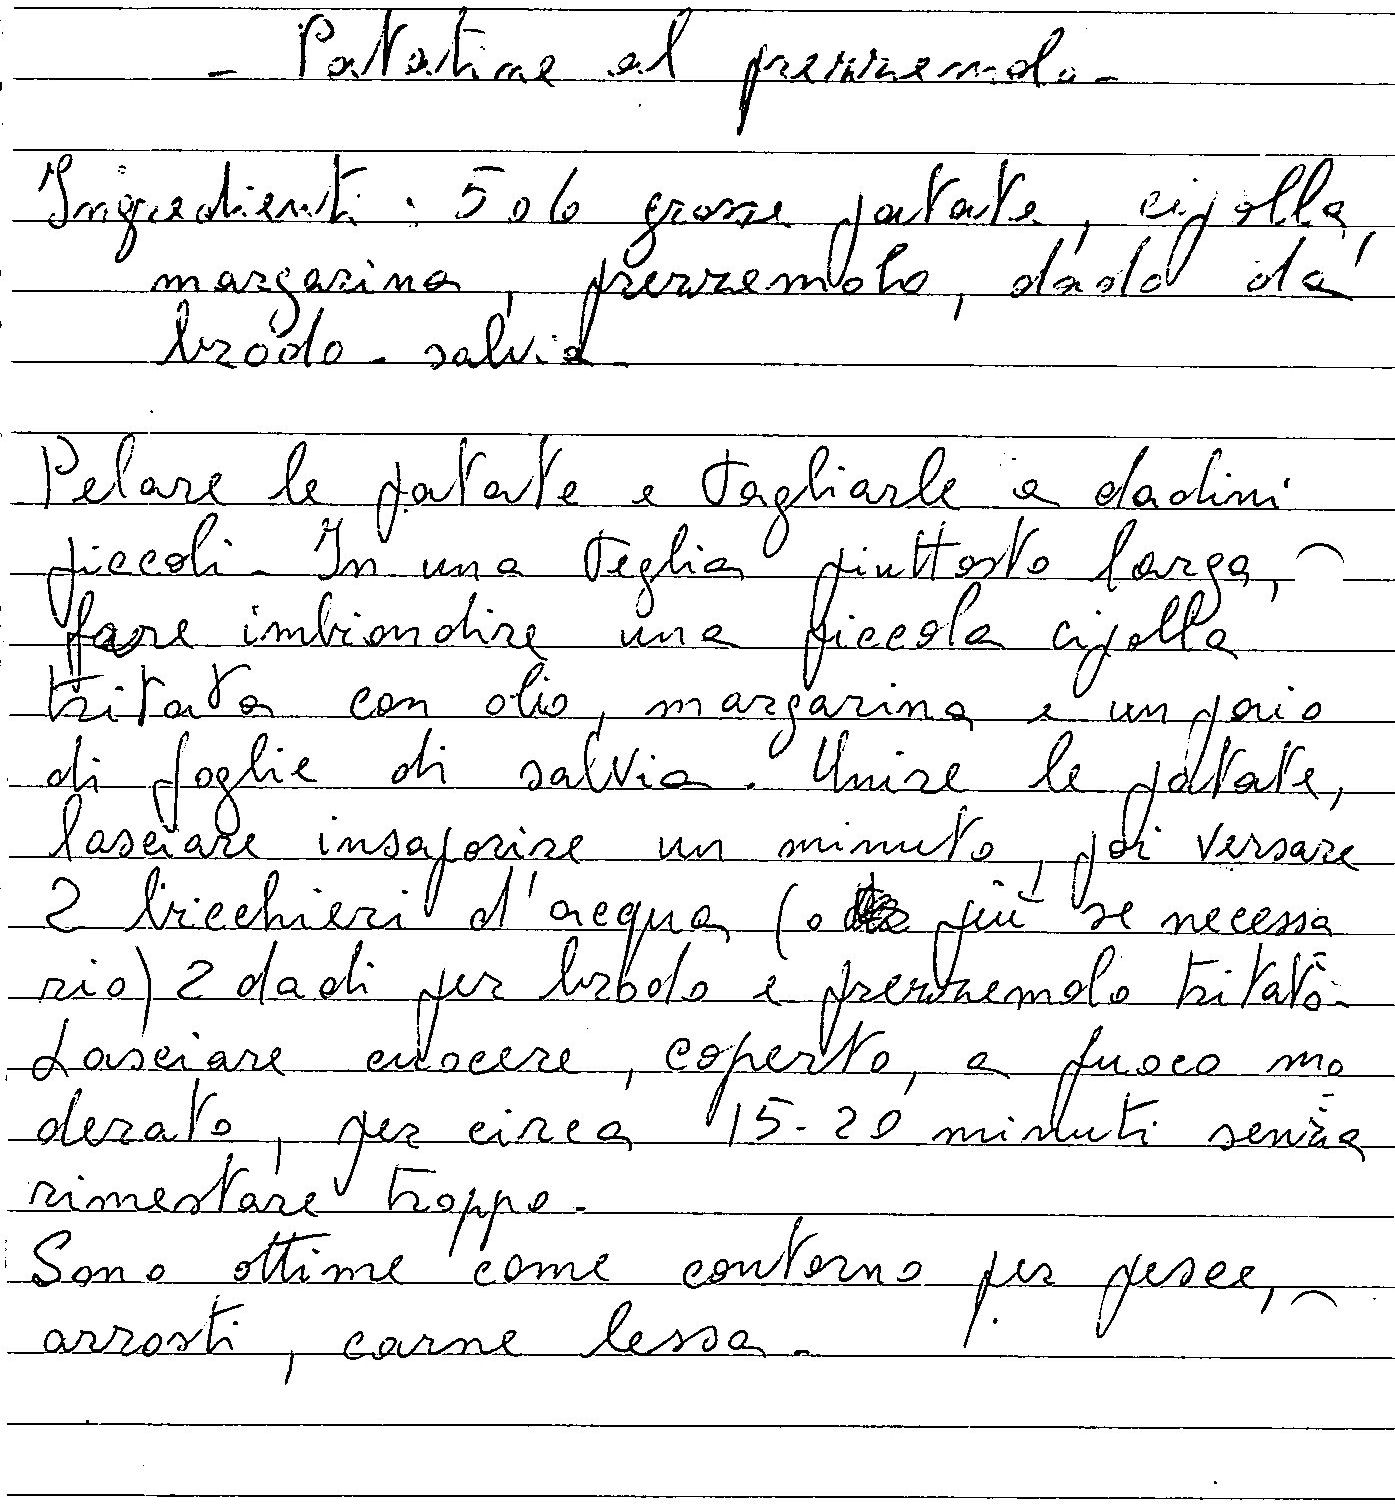 - Patatine al prezzemolo -
Ingredienti : 5 o 6 grosse patate, cipolla,
margarina, prezzemolo, dado da
brodo - salvia -
Pelare le patate e tagliarle a dadini
piccoli - In una teglia piuttosto larga,
fare imbiondire una piccola cipolla
tritata con olio, margarina e un paio
di foglie di salvia. Unire le patate,
lasciare insaporire un minuto, poi versare
2 bicchieri d'acqua (o più se necessa
rio) 2 dadi per brodo e prezzemolo tritato -
Lasciare cuocere, coperto, a fuoco mo
derato, per circa 15-20 minuti senza
rimestare troppo -
Sono ottime come contorno per pesce,
arrosti, carne lessa -